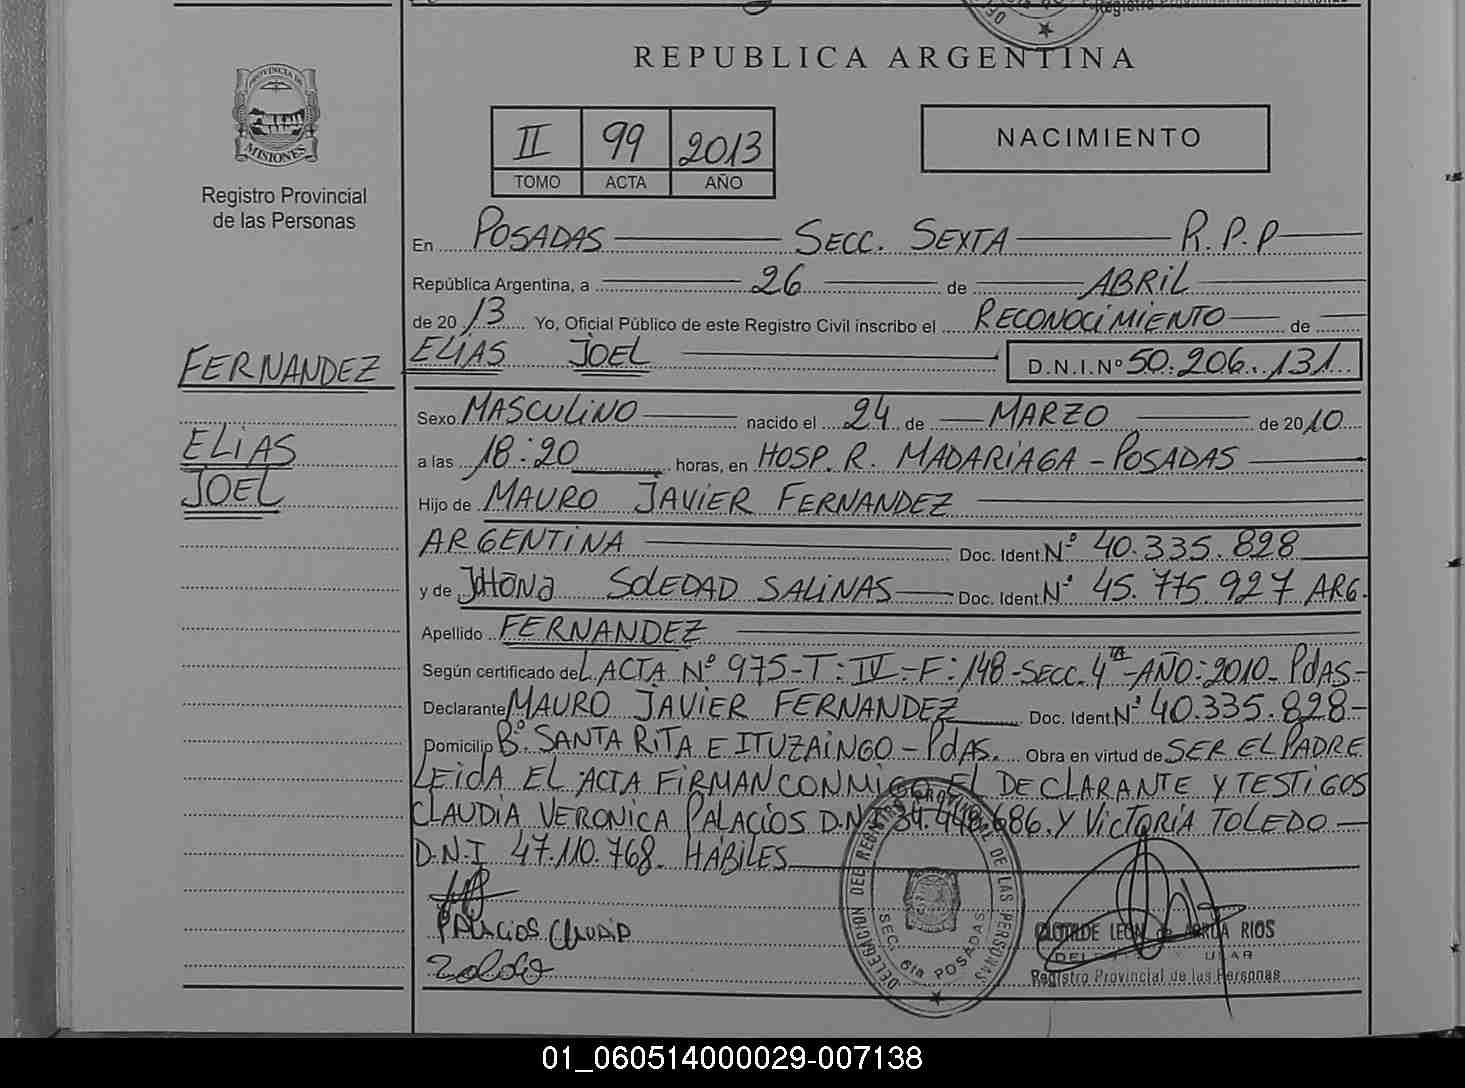 REPUBLICA ARGENTINA
PROVINCIA DE
MISIONES
Registro Provincial
de las Personas
II 99 2013
TOMO ACTA AÑO
NACIMIENTO
En POSADAS SECC. SEXTA R.P.P
República Argentina, a 26 de ABRIL
de 2013 Yo, Oficial Público de este Registro Civil inscribo el RECONOCIMIENTO de
ELIAS JOEL D.N.I.Nº 50.206.131
FERNANDEZ
ELIAS
JOEL
Sexo MASCULINO nacido el 24 de MARZO de 2010
a las 18:20 horas, en HOSP. R. MADARIAGA - POSADAS
Hijo de MAURO JAVIER FERNANDEZ
ARGENTINA Doc. Ident. Nº 40.335.828
y de JOHANA SOLEDAD SALINAS Doc. Ident. Nº 45.775.927 ARG.
Apellido FERNANDEZ
Según certificado del ACTA Nº 975-T:IV-F:148-SECC. 4TA-AÑO:2010- PdAS-
Declarante MAURO JAVIER FERNANDEZ Doc. Ident Nº 40.335.828-
Domicilio Bº SANTA RITA E ITUZAINGO - PdAS. Obra en virtud de SER EL PADRE
LEIDA EL ACTA FIRMAN CONMIGO EL DECLARANTE Y TESTIGOS
CLAUDIA VERONICA PALACIOS D.N.I 34.448.686. Y VICTORIA TOLEDO
D.N.I 47.110.768. HABILES
PALACIOS CLAUDIA
DELEGACION DEL REGISTRO PROVINCIAL DE LAS PERSONAS
SEC. 6ta POSADAS
CLOTILDE LEON de ARRUA RIOS
Registro Provincial de las Personas
01_060514000029-007138